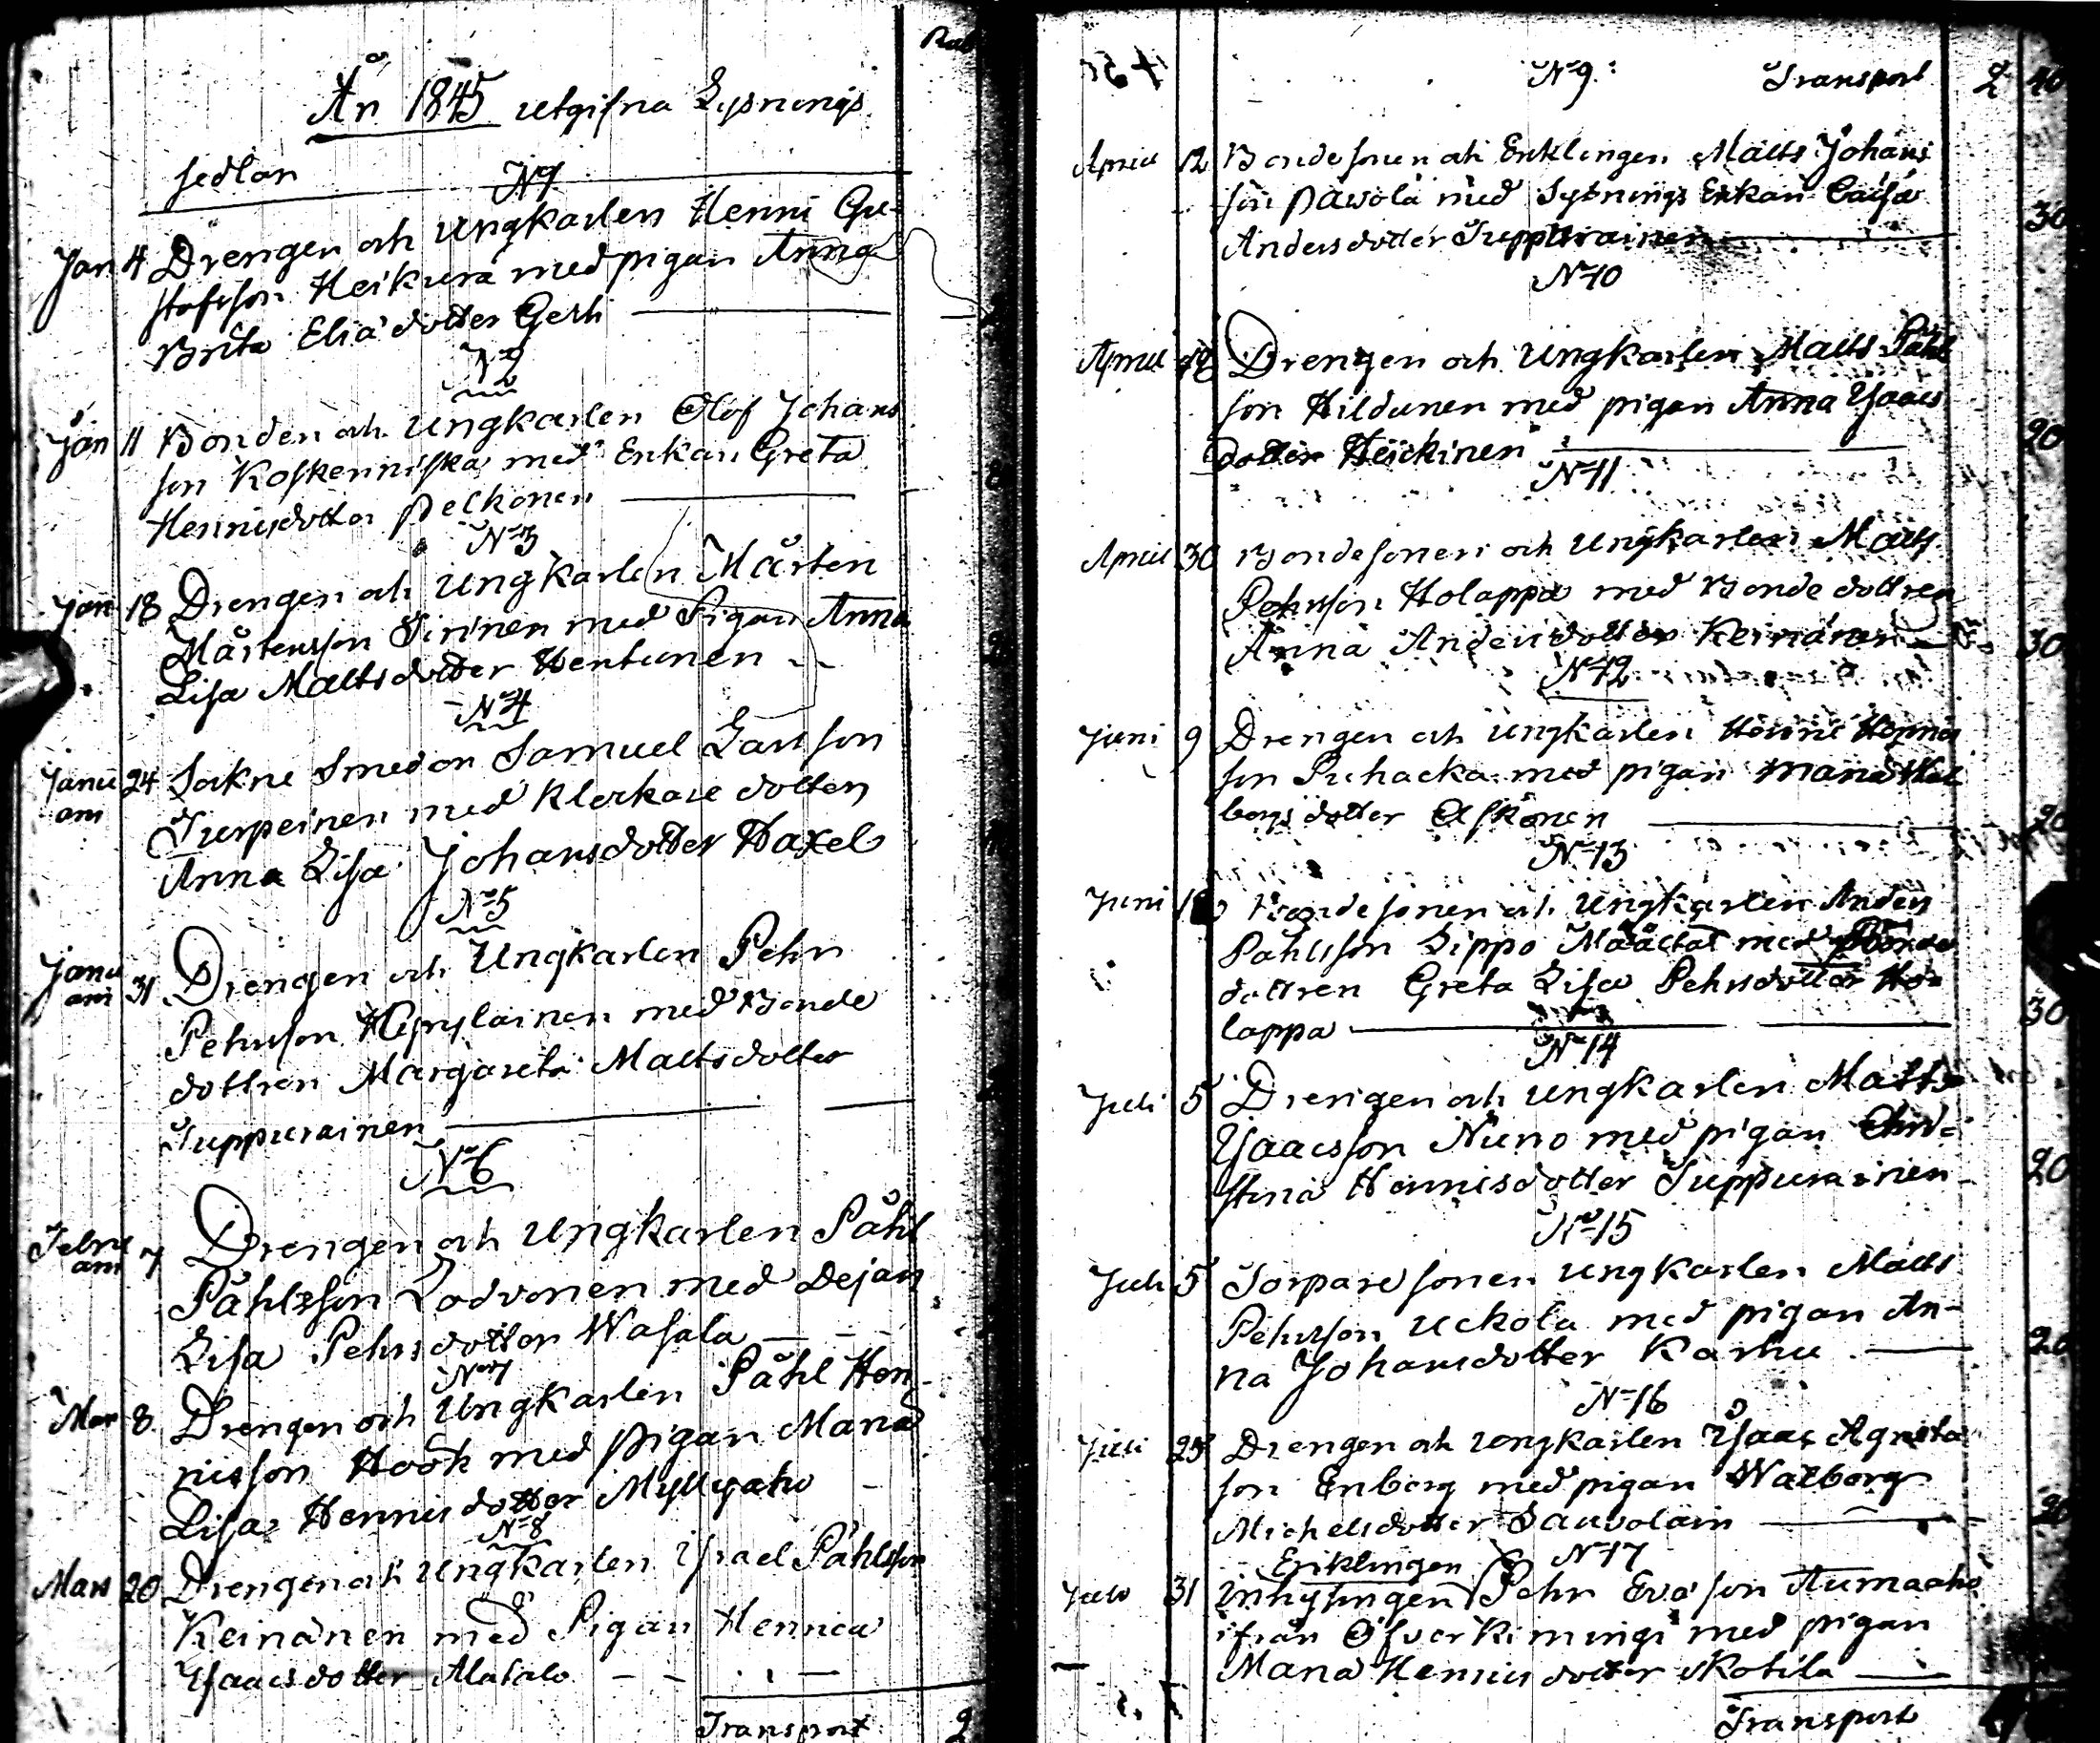 År 1845 utgifna Lysnings
sedlar
N 1
Jan 4 Drengen och Ungkarlen Henric Gu-
stafsson Heikura med pigan Anna
Brita Elia dotter Gerli
N 2
Jan 11 Bonden och Ungkarlen Olof Johans
son Koskenniska med Enkan Greta
Henricsdotter Pelkonen
N 3
Jan 18 Drengen och Ungkarlen Mårten
Mårtensson Tirinen med Pigan Anna
Lisa Mattsdotter Hentunen
N 4
Janu 24 Sokne Smeden Samuel Larsson
ari Turpeinen med Klockare dottern
Anna Lisa Johansdotter Haxel
N 5
Janu 31 Drengen och Ungkarlen Pehr
ari Pehrsson Hyrylainen med Bonde
dottren Margareta Mattsdotter
Juppurainen
N 6
Febru 7 Drengen och Ungkarlen Påhl
ari Påhlsson Lodvonen med Dejan
Lisa Pehrsdotter Wasala
N 7
Mar 8 Drengen och Ungkarlen Påhl Hen-
ricsson Hook med pigan Maria
Lisa Henricsdotter Myllyaho
N 8
Mars 20 Drengen och Ungkarlen Israel Påhlsson
Keinänen med Pigan Henrica
Isaacsdotter Matalo
Transport 2
N 9 Transport 2 40
April 12 Bondesonen och Enklingen Matts Johans
son Päwola med Sytnings Enkan Caisa
Andersdotter Juppurainen 30
N 10
April Drengen och Ungkarlen Matts Påhl
son Hildunen med pigan Anna Isaacs
dotter Heickinen 20
N 11
April 30 Bondesonen och Ungkarlen Matts
Pehrsson Holappa med Bonde dottren
Anna Andersdotter Keinänen 30
N 12
Juni 9 Drengen och Ungkarlen Henric Henrics
son Puhacka med pigan Maria Wal
borgsdotter Askonen 20
N 13
Juni Bondesonen och Ungkarlen Anders
Påhlsson Lippo Määttä med Bonde
dottren Greta Lisa Pehrsdotter Ho-
lappa 30
N 14
Juli 5 Drengen och Ungkarlen Matts
Isaacsson Nuno med pigan Chri-
stina Henricsdotter Juppurainen 20
N 15
Juli 5 Torparesonen Ungkarlen Matts
Pehrsson Uckola med pigan An-
na Johansdotter Karhu 20
N 16
Juli 25 Drengen och Ungkarlen Isaac Agneta
son Enberg med pigan Walborg
Michelsdotter Sauvolain 20
Enklingen N 17
Juli 31 Inhysingen Pehr Eva son Aumaaho
ifrån Öfverkimingi med pigan
Maria Henricsdotter Kotila
Transport